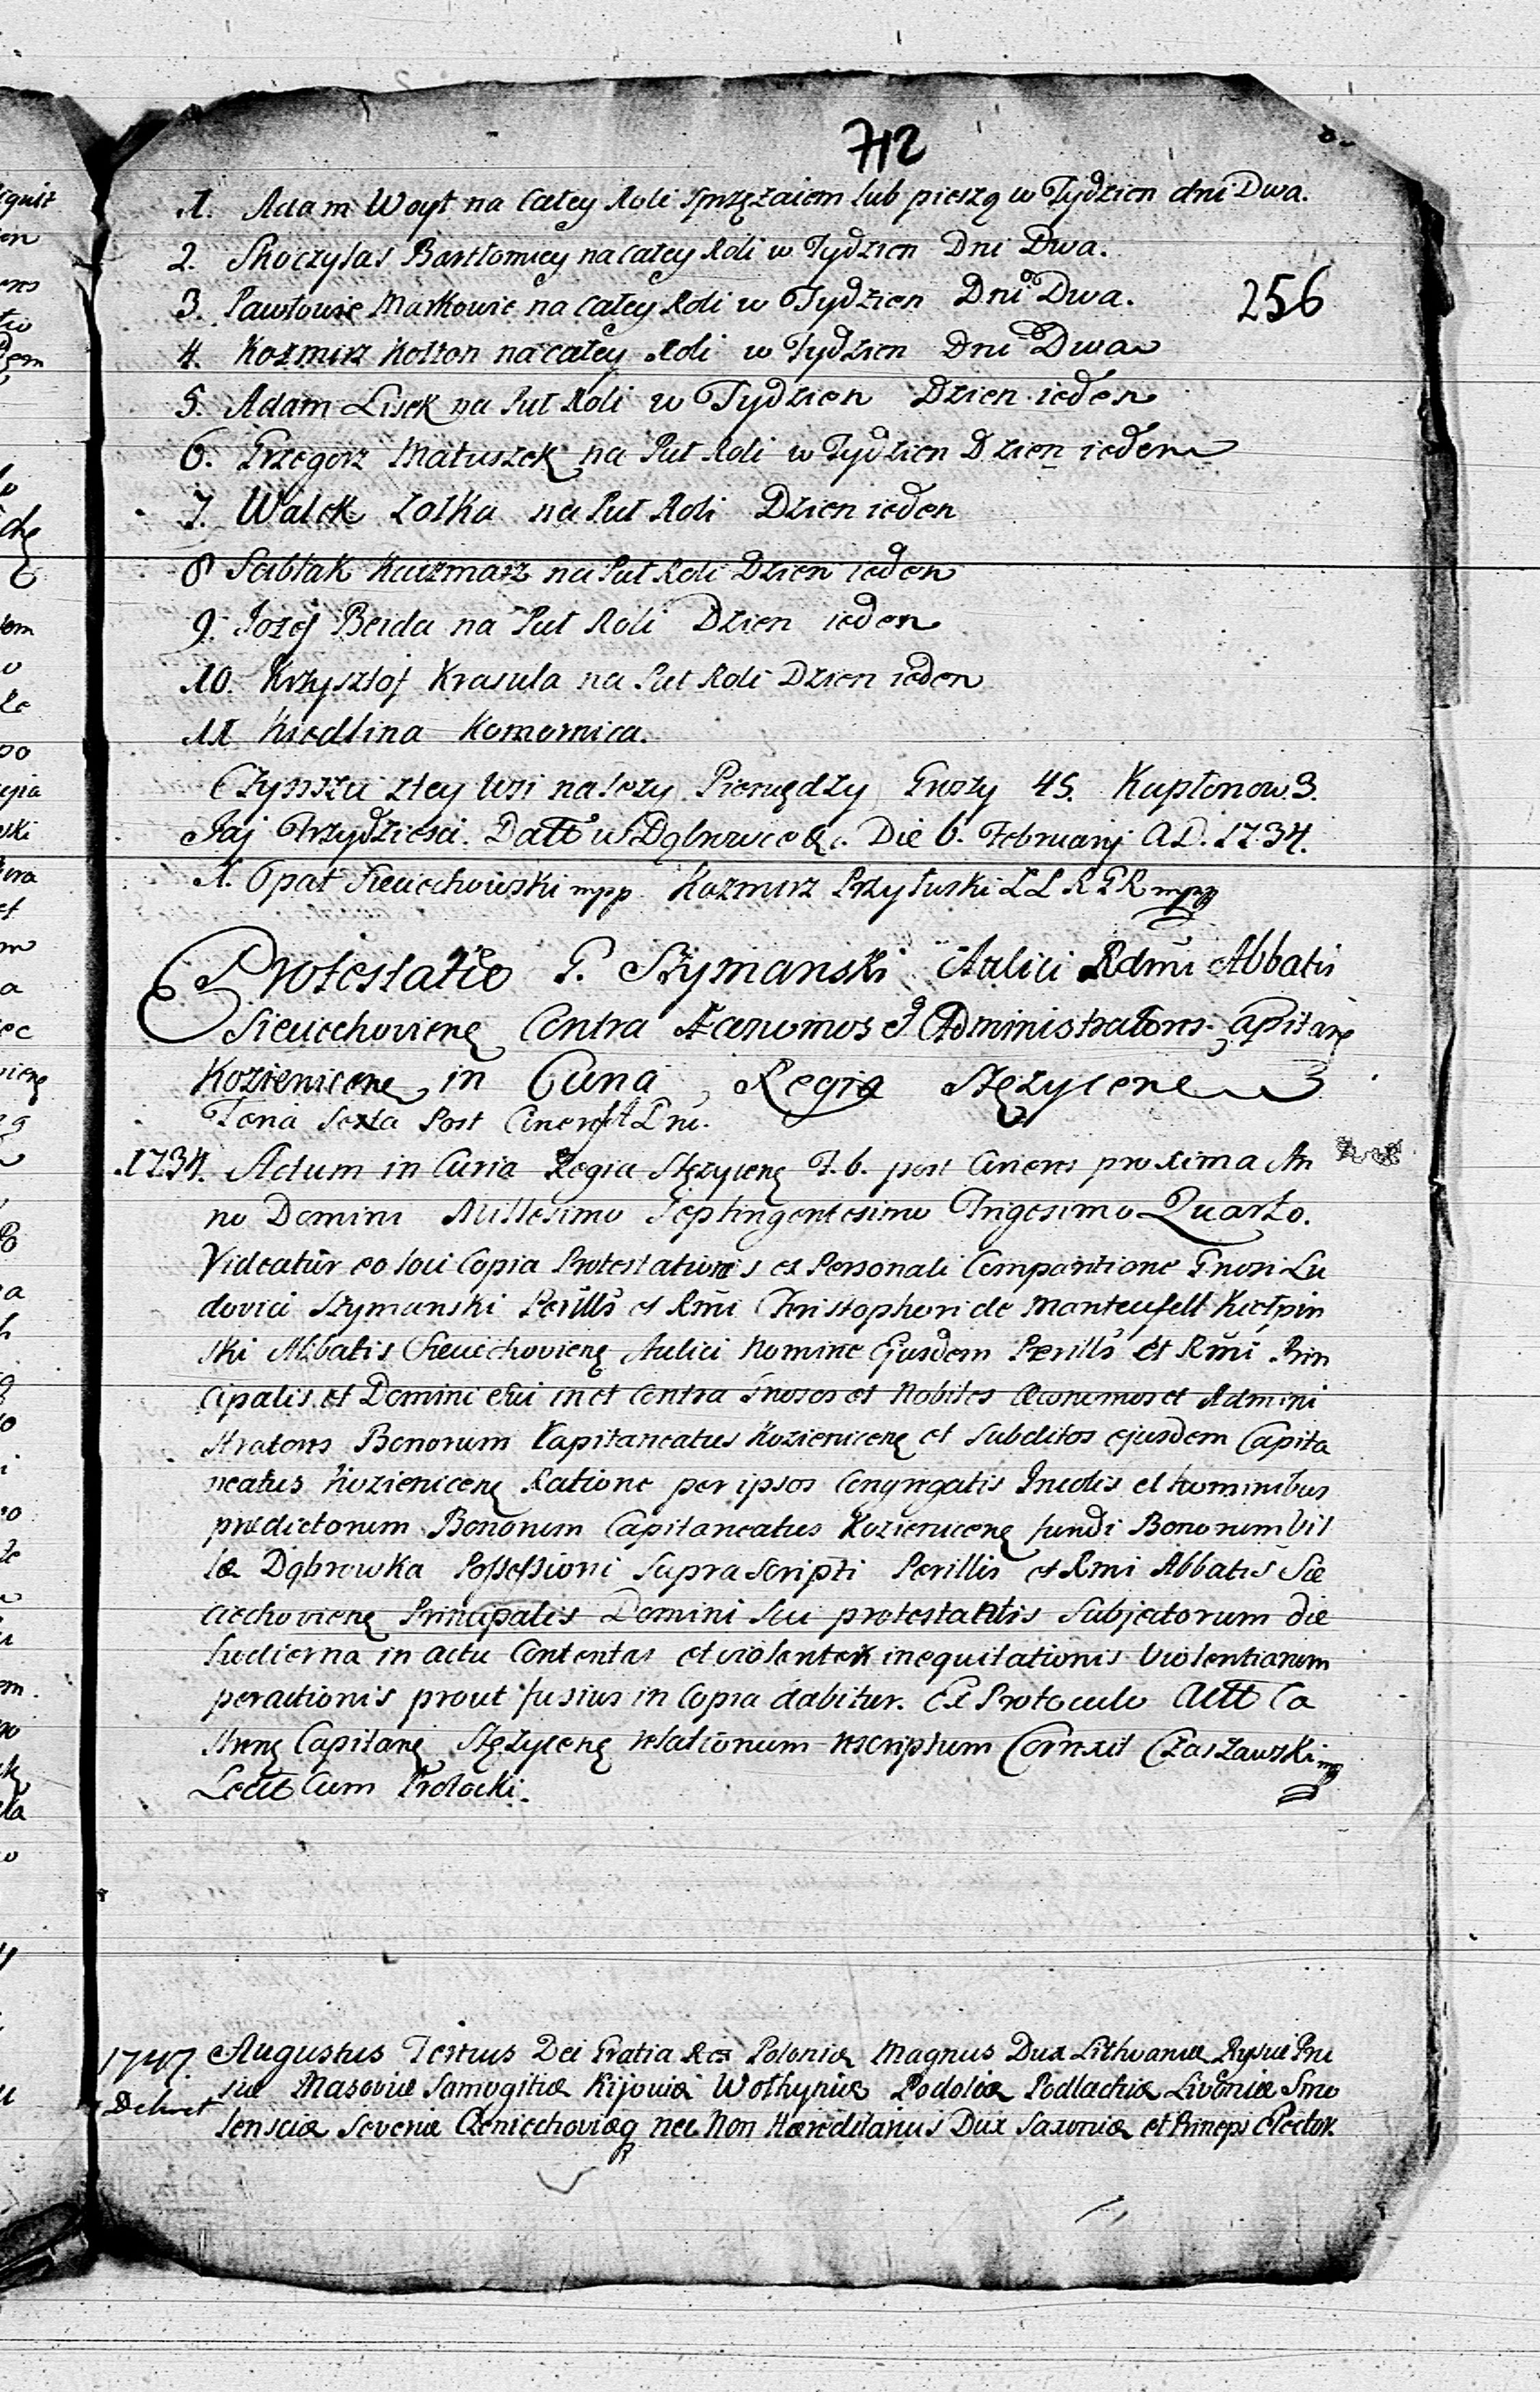 712
1. Adam Woyt na całey Roli sprzężaiem lub pieszą w Tydzien dni Dwa.
2. Skoczylas Bartłomiey na całey Roli w Tydzien Dni Dwa.
256
3. Pawłowie Markowie na całey Roli w Tydzien Dni Dwa.
4. Kazmirz na całey Roli w Tydzien Dni Dwa
5. Adam Lisek na Puł Roli w Tydzien Dzien ieden
6. Grzegorz Matuszek na Puł Roli w Tydzien Dzien ieden
7. Walek na Puł Roli Dzien ieden
8 Kaczmarz na Puł Roli Dzien ieden
9. Jozef Beida na Puł Roli Dzien ieden
10. Krzysztof Krasula na Puł Roli Dzien ieden
11 Komornica.
Czynszu ztey Wsi nalezy Pieniędzy Groszy 45. Kapłonow 3.
Jaj Trzydziesci. Datt w Dąbrowce &c. Die 6. Februarij A.D. 1734.
Opat Sieciechowski mpp Kazmirz Przyłuski mpp
Protestatio G. Szymanski Aulici Rdmi Abbatis
Sieciechoviens Contra Œconomos & Administratores Capitans
Koziénicens in Curia Regia Stęzycens
Feria Sexta Post Cineres
1734. Actum in Curia Regia Stęzycens F. 6. post Cineres proxima An
no Domini Millesimo Septingentesimo Trigesimo Quarto.
Videatur eo loci Copia Protestationis ex Personali Comparitione Gnosi Lu
dovici Szymanski Perills et Rmi Christophori de Manteufell Kiełpin
ski Abbatis Sieciechoviens Aulici Nomine Ejusdem Perills et Rmi Prin
cipalis et Domini sui in et Contra Gnosos et Nobiles Œconomos et Admini
stratores Bonorum Capitaneatus Kozienicens et Subditos ejusdem Capita
neatus Kozienicens Ratione per ipsos Congregatis Incolis et hominibus
prædictorum Bonorum Capitaneatus Kozienicens fundi Bonorum Vil
læ Dąbrowka Possessioni Suprascripti Perillis et Rmi Abbatis Sie
ciechoviens Principalis Domini sui protestantis Subjectorum die
hodierna in actu Contentas et violenter inequitationis Violentiarum
peractionis prout fusius in Copia dabitur. Ex Protocolo Actt Ca
strens Capitans Stęzycens relationum rescriptum Correxit Czaszawski mp
Lectt Cum Prołocki.
1747. Augustus Tertius Dei Gratia Rex Poloniæ Magnus Dux Lithvaniæ Russiæ Pru
Dekret siæ Masoviæ Samogitiæ Kijoviæ Wołhyniæ Podoliæ Podlachiæ Livoniæ Smo
lensciæ Severiæ Czerniechoviæq nec Non Hæreditarius Dux Saxoniæ et Princeps Elector.